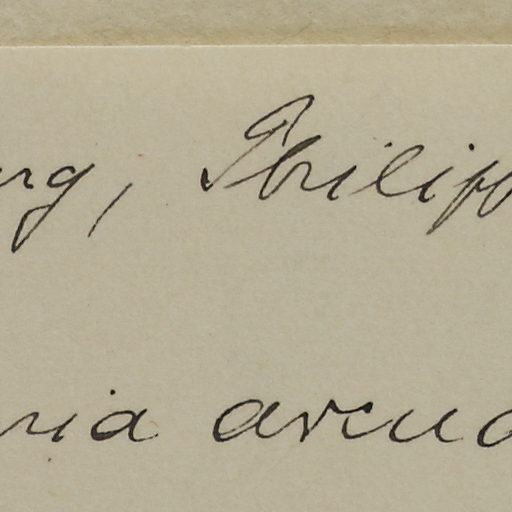 urg, Philipp
ria arcua